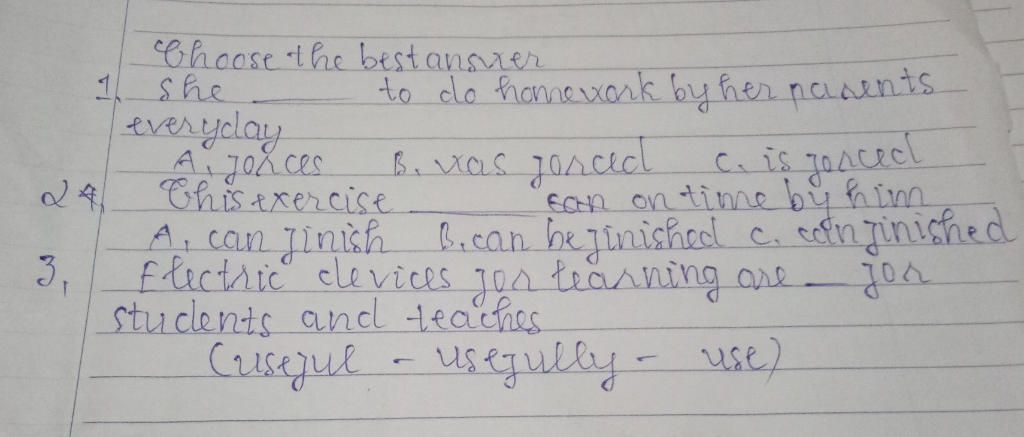 Choose the best answer
1. She ____ to do homework by her parents
everyday
A. forces B. was forced C. is forced
2 This exercise ____ on time by him
A. can finish B. can be finished C. can finished
3. Electric devices for learning are __ for
students and teaches
(useful - usefully - use)